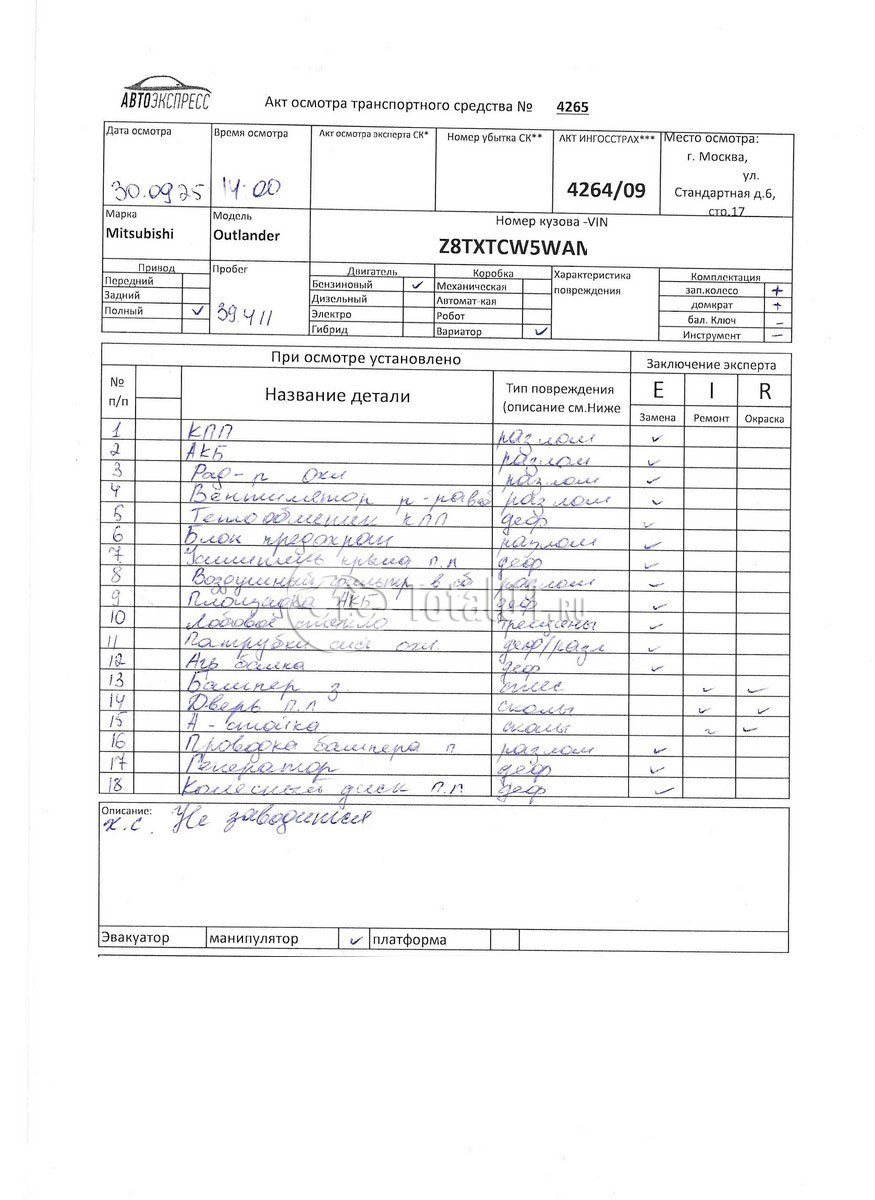 АВТОЭКСПРЕСС
Акт осмотра транспортного средства № 4265
Дата осмотра Время осмотра Акт осмотра эксперта СК* Номер убытка СК** АКТ ИНГОССТРАХ*** Место осмотра:
г. Москва,
ул.
30.09.25 14-00 4264/09 Стандартная д.6,
стр.17
Марка Модель Номер кузова -VIN
Mitsubishi Outlander Z8TXTCW5WAM
Привод Пробег Двигатель Коробка Характеристика повреждения Комплектация
Передний Бензиновый ✓ Механическая зап.колесо +
Задний Дизельный Автомат-кая домкрат +
Полный ✓ 39411 Электро Робот бал. Ключ –
Гибрид Вариатор ✓ Инструмент –
При осмотре установлено Заключение эксперта
№ п/п Название детали Тип повреждения (описание см.Ниже E I R
Замена Ремонт Окраска
1 КПП разлом ✓
2 АКБ разлом ✓
3 Рад-р охл разлом ✓
4 Вентилятор р-ра разлом ✓
5 Теплообменник КПП деф ✓
6 Блок предохран разлом ✓
7 Усилитель крыла п.п деф ✓
8 Воздушный фильтр в сб разлом ✓
9 Площадка АКБ деф ✓
10 Лобовое стекло трещины ✓
11 Патрубки сис охл. деф/разл ✓
12 Агр балка деф ✓
13 Бампер з ✓ ✓
14 Дверь п.п сколы ✓ ✓
15 А-стойка сколы ✓ ✓
16 Проводка бампера п разлом ✓
17 Генератор деф ✓
18 Колесный диск п.п деф ✓
Описание:
х.с. Не заводится
Эвакуатор манипулятор ✓ платформа
Total01.RU